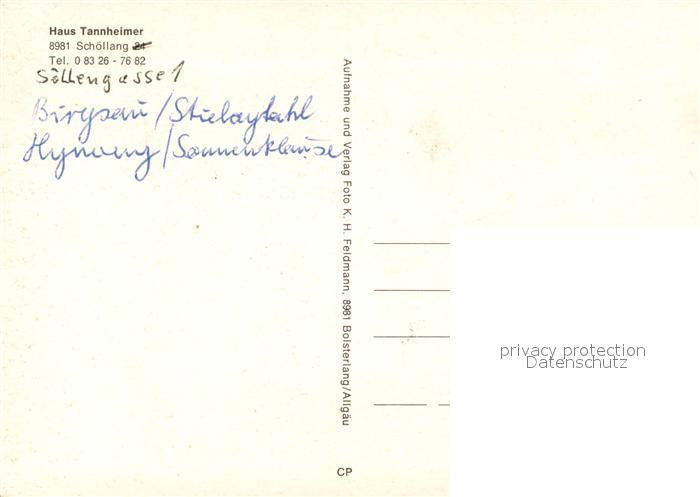 Haus Tannheimer
8981 Schöllang 24
Tel. 0 83 26 - 76 82
Söllengasse 1
Birgsau /
/ Sonnenklause
Aufnahme und Verlag Foto K. H. Feldmann, 8981 Bolsterlang/Allgäu
CP
privacy protection
Datenschutz